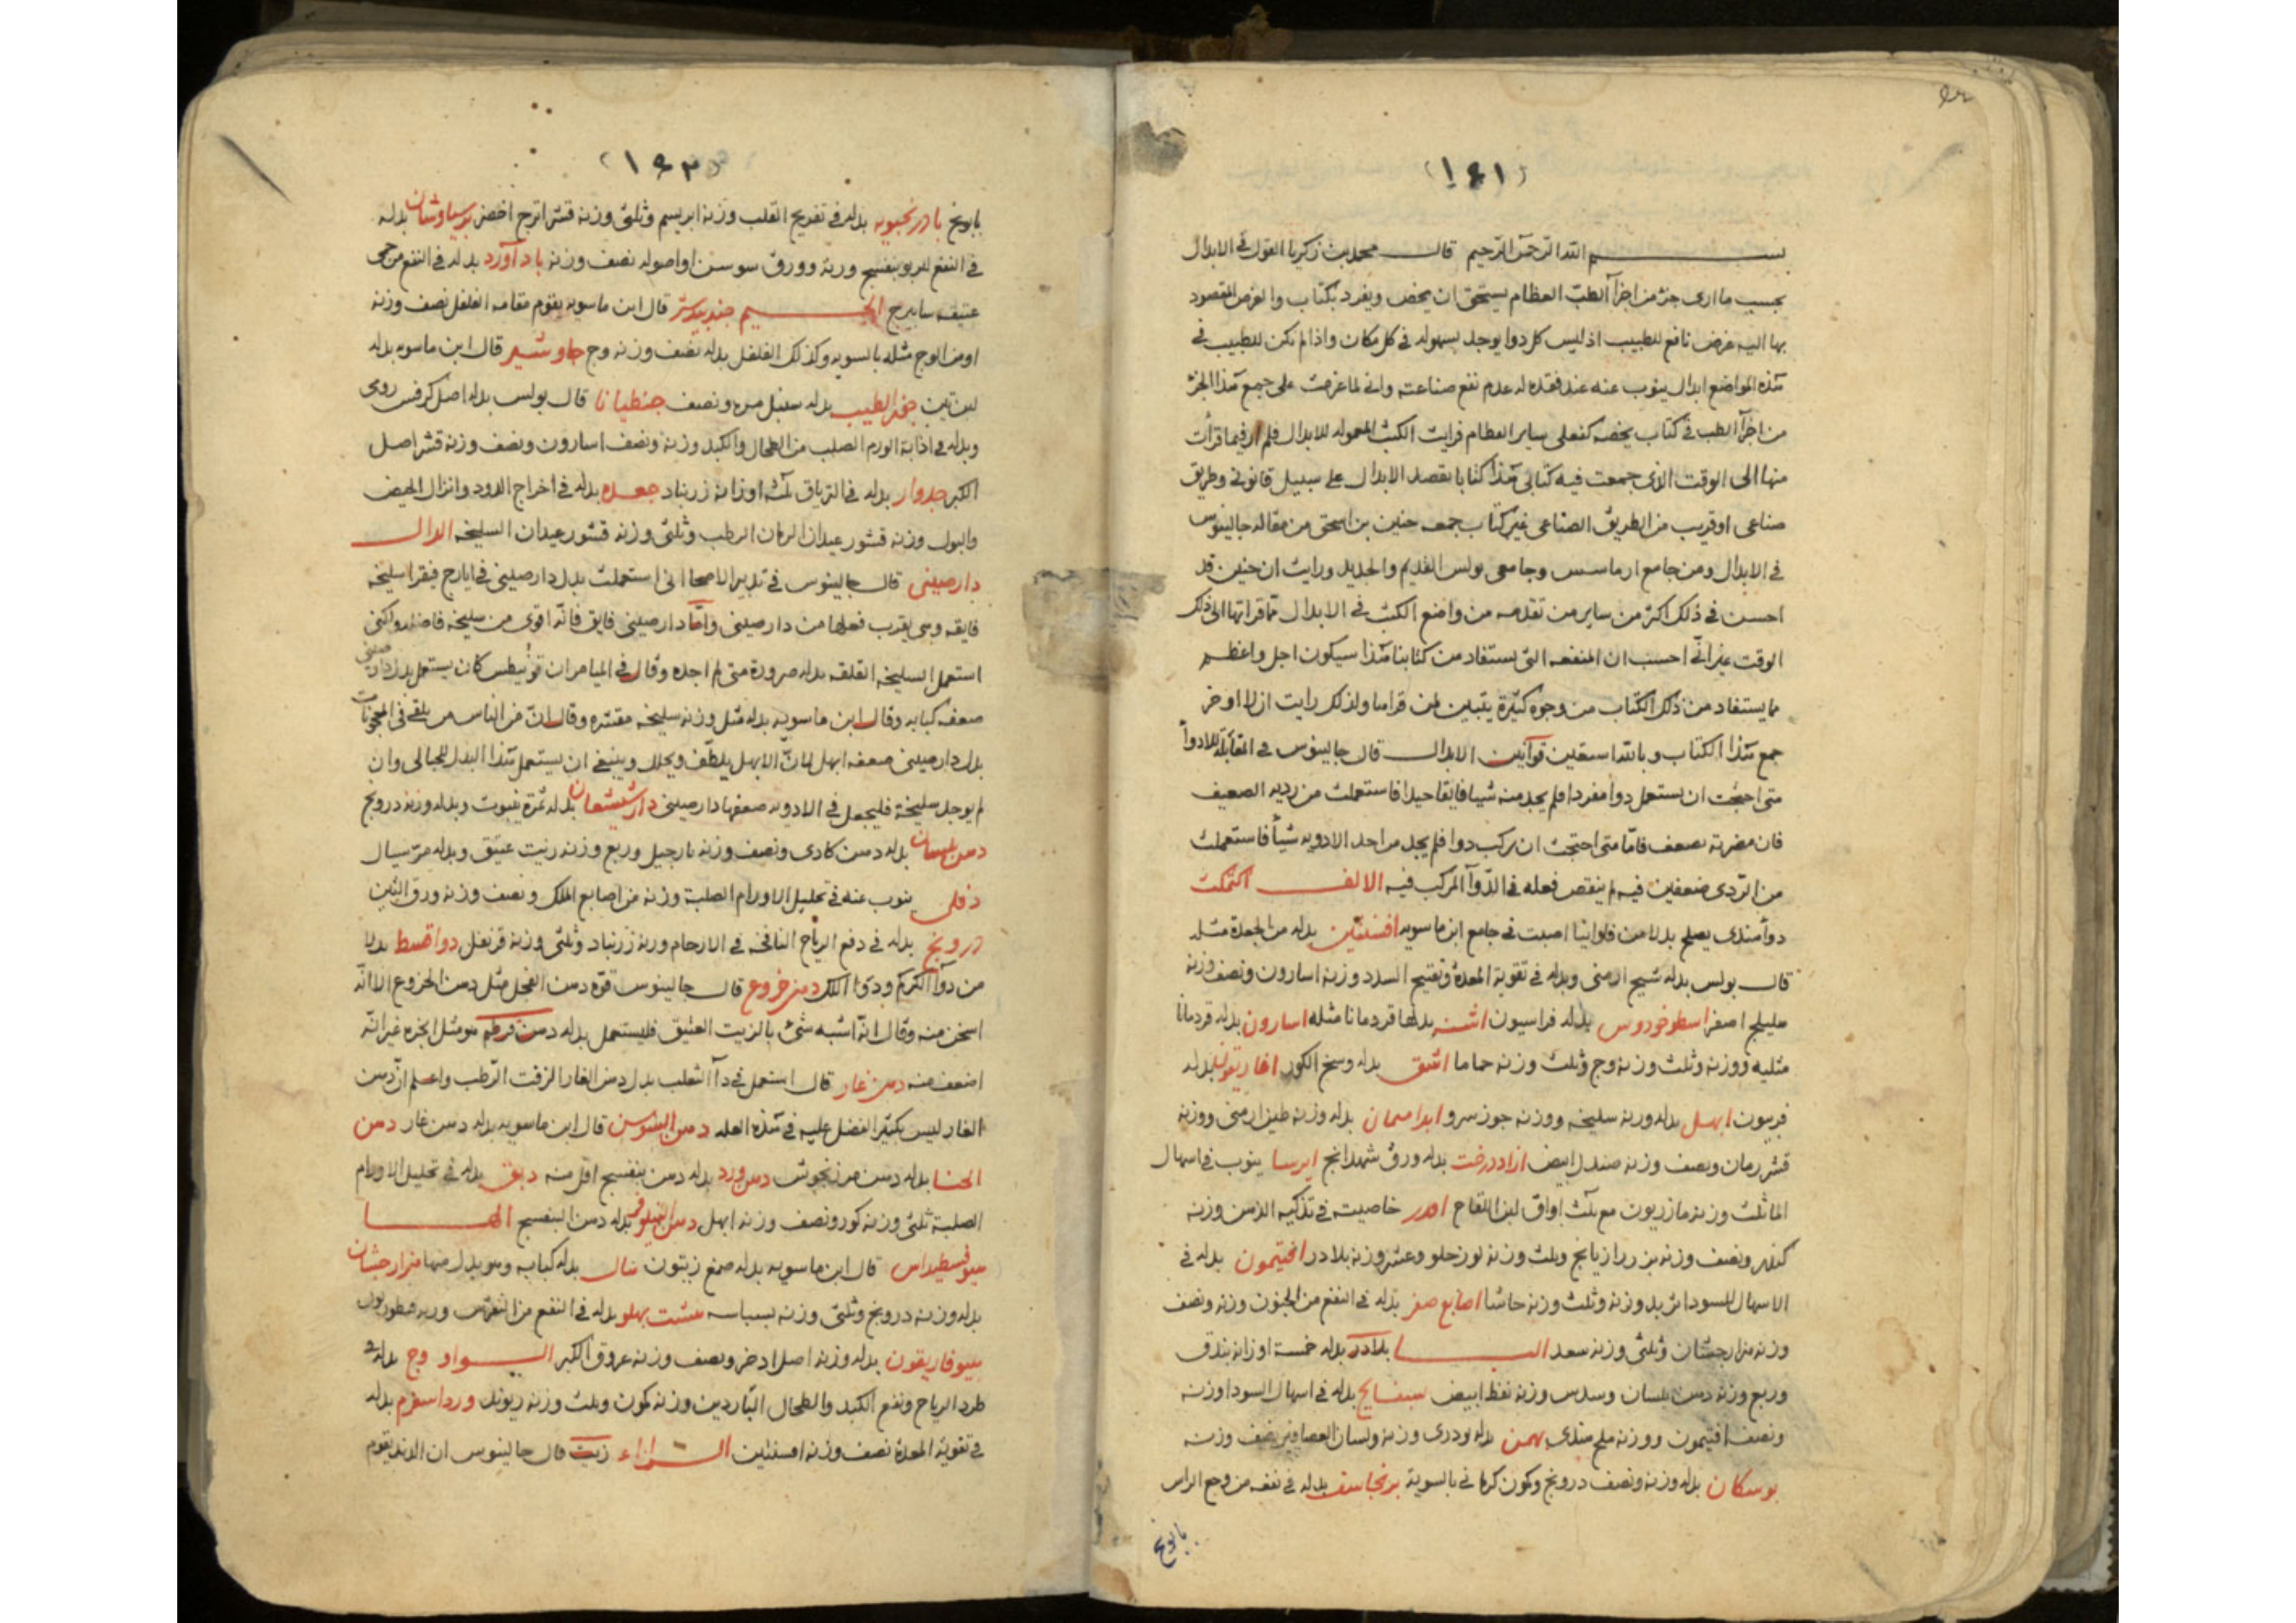 (١٤١)
بسم الله الرحمن الرحيم قال محمد بن زكريا القول في الابدال
بحسب ما ارى جزء من اجزآ الطبّ العظام يستحق ان يخص ويفرد بكتاب والغرض المقصود
بها اليه غرض نافع للطبيب اذ ليس كل دوا يوجد بسهوله في كل مكان واذا لم تكن للطبيب في
هذه المواضع ابدال ينوب عنه عند فقده له عدم نفع صناعته واني لما عزمت على جمع هذا الجزء
من اجزآ الطب في كتاب يخصه كفعلى ساير العظام فرايت الكتب المعموله للابدال فلم ار فيما قرأت
منها الى الوقت الذى جمعت فيه كتابى هذا كتابا بقصد الابدال على سبيل قانونى وطريق
صناعى او قريب من الطريق الصناعى غير كتاب جمعه حنين بن اسحق من مقاله جالينوس
في الابدال ومن جامع ارماسس وجامعى بولس القديم والجديد ورايت ان حنين قد
احسن في ذلك اكثر من ساير من تقدمه من واضع الكتب في الابدال مما قراتها الى ذلك
الوقت غير انّى احسب ان المنفعه التى يستفاد من كتابنا هذا سيكون اجل واعظم
مما يستفاد من ذلك الكتاب من وجوه كثيرة يتبين لمن قراها ولذلك رايت ان لا اوخر
جمع هذا الكتاب وبالله استعين قوانين الابدال قال جالينوس في المقابلة للادوآ
متى احتجت ان يستعمل دوا مفردا فلم يجد منه شيا فايقا جيدا فاستعملت من رديه الضعيف
فان مضرته بضعف فامّا متى احتجت ان يركب دوا فلم يجد من احد الادويه شيأ فاستعملت
من الرّدى ضعفين فيه لم ينقص فعله في الدّوآ المركب فيه الالف اكتمكت
دوآ هندى يصلح بدلا من فاوانيا اصبت في جامع ابن ماسويه افسنتين بدله من الجعدة مثله
قال بولس بدله شيح ارمنى وبدله في تقوية المعدة وتفتيح السدد وزنه اسارون ونصف وزنه
هليلج اصفر اسطوخودوس بدله فراسيون اشنه بدلها قردمانا مثله اسارون بدله قردمانا
مثليه ووزنه وثلث وزنه وج وثلث وزنه حماما اشق بدله وسخ الكور افاريقون بدله
فربيون ابهل بدله وزنه سليخه ووزنه جوز سرو بدله وزنه طين ارمنى ووزنه
قشر رمان ونصف وزنه صندل ابيض ازاددرخت بدله ورق شهدانج ايرسا ينوب في اسهال
الما ثلث وزنه مازريون مع ثلث اواق لبن اللقاح خاصيته في تذكيه الذهن وزنه
كندر ونصف وزنه بزر رازيانج وثلث وزنه لوز حلو وعشر وزنه بلادر افتيمون بدله في
الاسهال للسودا تربد وزنه وثلث وزنه حاشا اصابع صفر بدله في النفع من الجنون وزنه ونصف
وزنه هزارجشان وثلثى وزنه سعد البا بلادر بدله خمسة اوزانه بندق
وربع وزنه دهن بلسان وسدس وزنه نفط ابيض بسفايج بدله في اسهال السودا وزنه
ونصف افتيمون ووزنه ملح هندى بهمن بدله تودرى وزنه ولسان العصافير نصف وزنه
بوسكان بدله وزنه ونصف درونج وكمون كرمانى بالسوية برنجاسف بدله في نفعه من وجع الراس
بابونج
(١٤٢)
بابونج بادرنجبويه بدله في تفريح القلب وزنه ابريسم وثلثى وزنه قشر اترج اخضر برسياوشان بدله
في النفع للربو بنفسج وزنه وورق سوسن او اصوله نصف وزنه باد آورد بدله في النفع من حمى
عتيقه سابيرج الجيم جندبيدستر قال ابن ماسويه يقوم مقامه الفلفل نصف وزنه
او من الوج مثله بالسويه وكذلك الفلفل بدله نصف وزنه وج جاوشير قال ابن ماسويه بدله
لبن تين بدله سنبل مره ونصف جنطيانا قال بولس بدله اصل كرفس رومى
وبدله في اذابة الورم الصلب من الطحال والكبد وزنه ونصف اسارون ونصف وزنه قشر اصل
الكبر جدوار بدله في الترياق ثلثه اوزانه زرنباد جعده بدله في اخراج الدود وانزال الحيض
والبول وزنه قشور عيدان الرمان الرطب وثلثى وزنه قشور عيدان السليخه الدال
دارصينى قال جالينوس في تدبير الاصحا انى استعملت بدل دارصينى في ايارج فيقرا سليخه
فايقه وهى يقرب فعلها من دارصينى وامّا دارصينى فايق فانّه اقوى من سليخه فاضله ولكنى
استعمل السليخه الفايقه بدله ضرورة متى لم اجده وقال في الميامر ان كان يستعمل بدل دارصينى
ضعفه كبابه وقال ابن ماسويه بدله مثل وزنه سليخه مقشره وقال انّ من الناس من يلقى في المعجونات
بدل دارصينى ضعفه ابهل لانّ الابهل يلطّف ويحلل وينبغى ان يستعمل هذا البدل للحبالى وان
لم يوجد سليخة فليجعل في الادويه ضعفها دارصينى دارشيشعان بدله ثمرة ينبوت وبدله وزنه درونج
دهن بلسان بدله دهن كادى ونصف وزنه نارجيل وربع وزنه زيت عتيق وبدله مرّ سيال
دفلى ينوب عنه في تحليل الاورام الصلبة وزنه من اصابع الملك ونصف وزنه ورق التين
درونج بدله في دفع الرياح النافخه في الارحام وزنه زرنباد وثلثى وزنه قرنفل دوا قسط بدلا
من دوآ الكركم ودوآ اللك دهن خروع قال جالينوس قوّه دهن الفجل مثل دهن الخروع الا انّه
اسخن منه وقال انّه اشبه شئ بالزيت العتيق فليستعمل بدله دهن قرطم هو مثل انجره غير انّه
اضعف منه دهن غار قال استعمل في دآ الثعلب بدل دهن الغار الزفت الرّطب واعلم انّ دهن
الغار ليس بكثير الفضل عليه في هذه العله دهن السّوسن قال ابن ماسويه بدله دهن غار دهن
الحنا بدله دهن مرزنجوش دهن ورد بدله دهن بنفسج اقل منه دبق بدله في تحليل الاورام
الصلبة ثلثى وزنه كور ونصف وزنه ابهل دهن النيلوفر بدله دهن البنفسج الها
هيوفسطيداس قال ابن ماسويه بدله صمغ زيتون هال بدله كبابه وهو بدل منها هزارجشان
بدله وزنه درونج وثلثى وزنه بسباسه هشت بهلو بدله في النفع من النقرس وزنه قنطوريون
هيوفاريقون بدله وزنه اصل اذخر ونصف وزنه عروق الكبر الواو وج بدله في
طرد الرياح ونفع الكبد والطحال الباردين وزنه كمون وثلث وزنه ريوند ورد اسفرم بدله
في تقوية المعدة نصف وزنه افسنتين الزاء زيت قال جالينوس ان يقوم